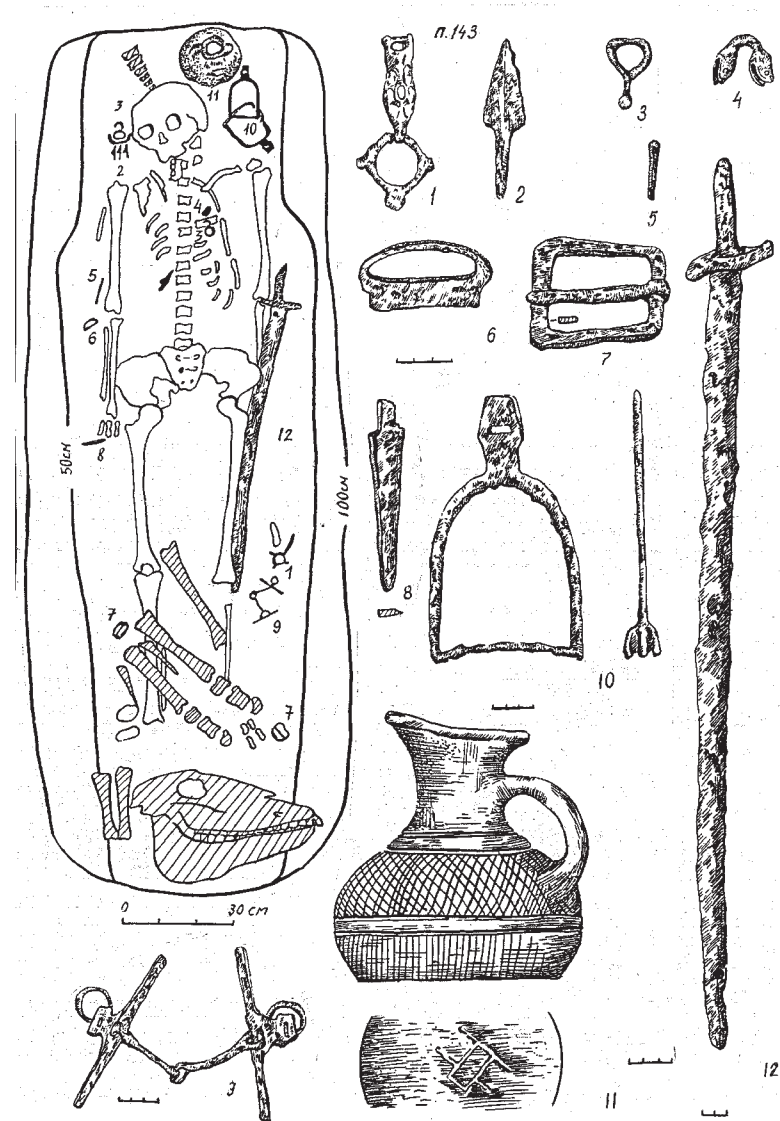 п.143
3
11
10
111
2
4
5
6
12
8
50см
100см
1
9
7
7
0 30 см
1
2
3
4
5
6
7
8
10
9
11
12